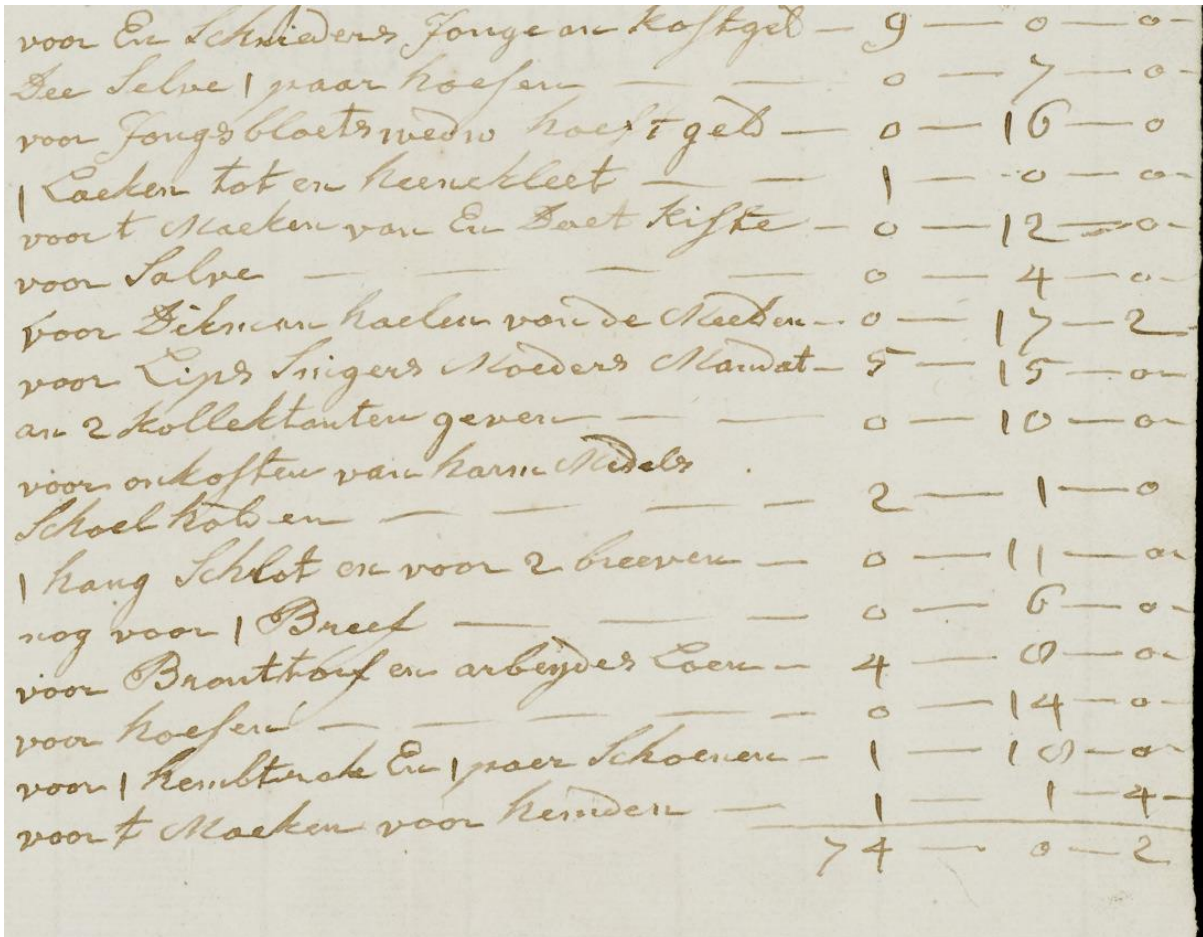 voor En Schnieders Jonge an kostgelt — 9 — 0 — 0
Dee Selve 1 paar hoesen — — 0 — 7 — 0
voor Jongsbloets wedw hoest gelt — 0 — 16 — 0
1 Laeken tot en heenekleet — — 1 — 0 — 0
voor t Maeken van En Doet Kiste — 0 — 12 — 0
voor Salve — — — — 0 — 4 — 0
voor Dikman haelen van de Meeden — 0 — 17 — 2
voor Lips Singers Moeders Mandat — 5 — 15 — 0
an 2 Kollektanten geven — — 0 — 10 — 0
voor onkosten van harm
Schoel holden — — — — 2 — 1 — 0
1 hang Schlot en voor 2 breeven — 0 — 11 — 0
nog voor 1 Breef — — — 0 — 6 — 0
voor Brantt en arbeydes Loen — 4 — 8 — 0
voor hoesen — — — — — 0 — 14 — 0
voor 1 hembtrok En 1 paer Schoenen — 1 — 18 — 0
voor t Maeken voor hemden — 1 — 1 — 4
74 — 0 — 2